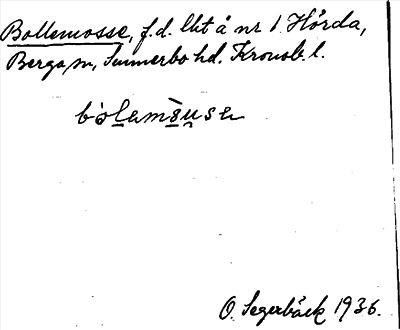 Bollemosse, f.d. lht å nr 1 Hörda,
Berga sn, Sunnerbo hd. Kronob. l.
bòlemùsen
O. Segerbäck 1936.